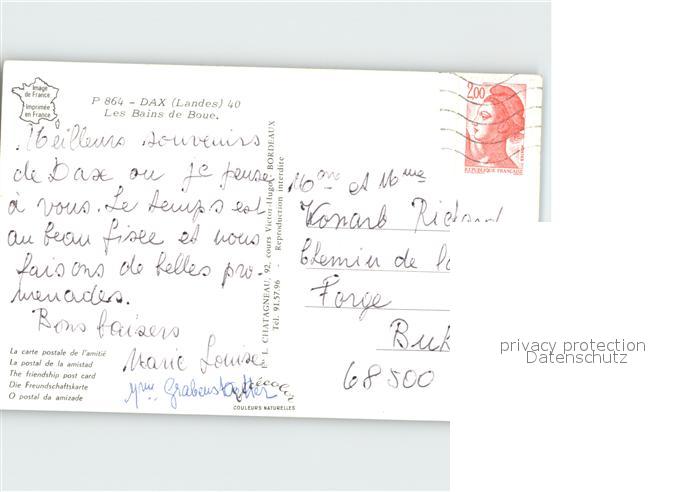 Image
de France
Imprimée
en France
P 864 - DAX (Landes) 40
Les Bains de Boue.
2,00
RÉPUBLIQUE FRANÇAISE
Meilleurs souvenirs
de Dax ou je pense
à vous. Le temps est
au beau fixe et nous
faisons de belles pro-
menades.
Bons baisers
Marie Louise
Mme
L. CHATAGNEAU, 92, cours Victor-Hugo, BORDEAUX
Tel. 91.57.96 Reproduction interdite
et Mme
Richard
Chemin de
Forge
68500
La carte postale de l'amitié
La postal de la amistad
The friendship post card
Die Freundschaftskarte
O postal da amizade
COULEURS NATURELLES
privacy protection
Datenschutz